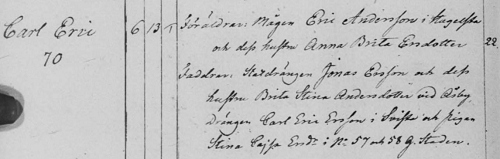 Carl Eric 6 13 Föräldrar: Mågen Eric Andersson i
och dess hustru Anna Brita Ersdotter 22.
70 Faddrar: Statdrängen Jonas Ersson och dess
hustru Brita Stina Andersdotter vid Åsby
drängen Carl Eric Ersson i och pigan
Stina Cajsa Ersd: i No 57 och 58 q. Staden.